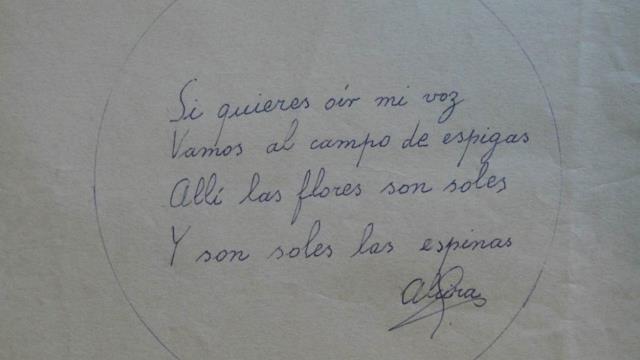 Si quieres oír mi voz
Vamos al campo de espigas
Allí las flores son soles
Y son soles las espinas